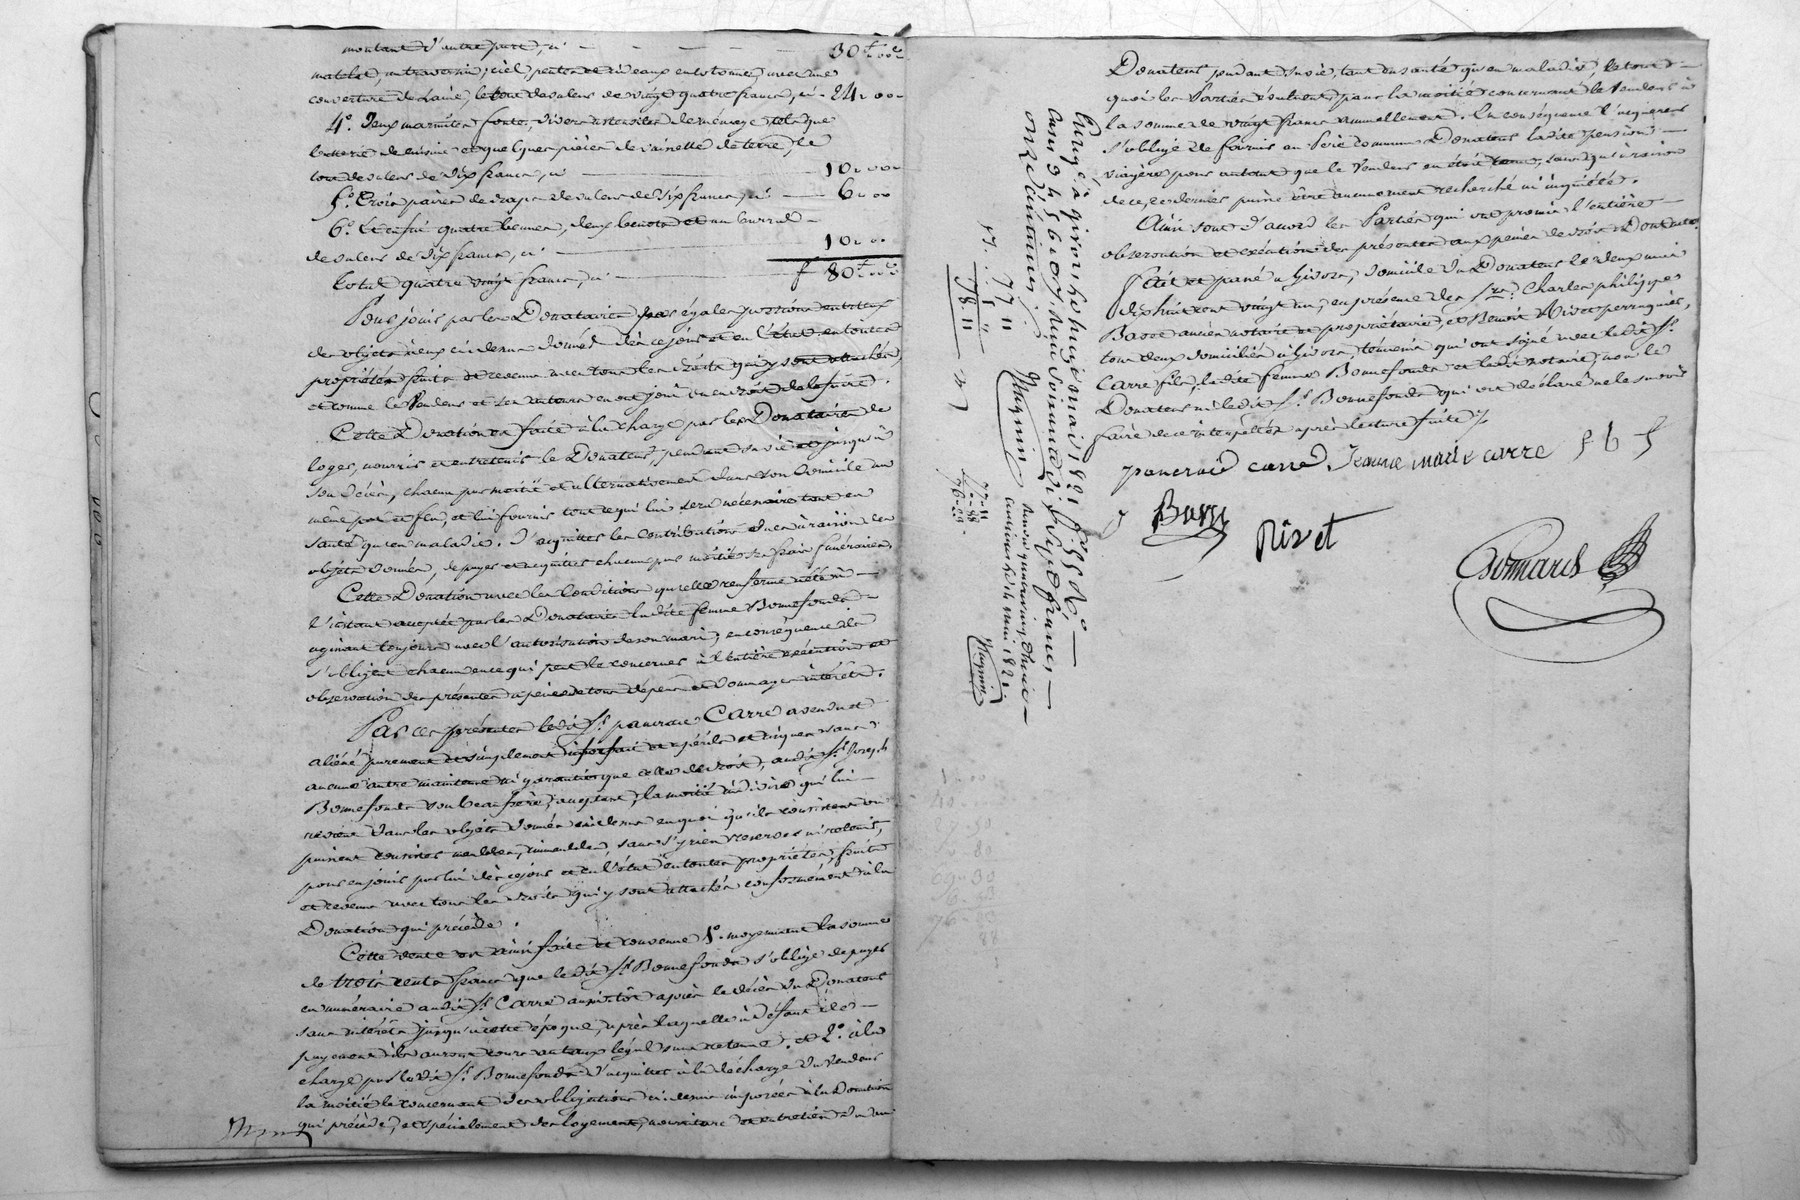 montant d'autre part, ci — 30 f. 00 c
matelat, un traversin, ciel, pentes et rideaux en cotonne, avec une
couverture de Laine, le tout de valeur de vingt quatre francs, ci - 24, 00
4°. Deux marmites fonte, divers ustensiles de ménage, tels que
batterie de cuisine et quelques pièces de vaisselle de terre, le
tout de valeur de dix francs, ci — 10, 00
5°. Trois paires de draps de valeur de Six francs, ci — 6, 00
6°. Et enfin quatre bennes, deux benots et un barral
de valeur de dix francs, ci — 10, 00
total quatre vingt francs, ci — f 80 f. 00 c
Pour jouir par les Donataires par égales portions entr'eux
des objets à eux ci dessus donnés dès ce jour et en l'état en toutes
propriétés fruits et revenus avec tous les droits qui y sont attachés,
et comme le Vendeur et ses auteurs en ont joui ou en droit de le faire.
Cette Donation est faite à la charge par les Donataires de
loger, nourrir et entretenir le Donateur, pendant sa vie et jusqu'à
son décès, chacun par moitié et alternativement dans son domicile au
même pot et feu, et lui fournir tout ce qui lui sera nécessaire tant en
santé qu'en maladie. D'acquitter les contributions dues à raison des
objets donnés, de payer et acquitter chacun par moitié ses frais funéraires.
Cette Donation avec les Conditions qu'elle renferme a été à
l'instant acceptée par les Donataires ladite femme Bonnefonds
agissant toujours avec l'autorisation de son mari, en conséquence ils
s'obligent chacun en ce qui peut le concerner à l'entière exécution et
observation des présentes à peine de tous dépens et dommages intérêts.
Par ces présentes ledit Sr. pancrace Carré a vendu et
aliéné purement et simplement à forfait et à périls et risques sans
aucune autre maintenue ni garantie que celle de droit, audit Sr. Joseph
Bonnefonds son beau frère, acceptant, la moitié indivise qui lui
revient dans les objets donnés ci dessus en quoi qu'ils consistent ou
puissent consister meubles, immeubles, sans s'y rien réserver ni retenir,
pour en jouir par lui dès ce jour et en l'état en toutes propriétés, fruits
et revenus avec tous les droits qui y sont attachés conformément à la
Donation qui précède.
Cette vente est ainsi faite et convenue 1°. moyennant la somme
de trois cents francs que ledit Sr. Bonnefonds s'oblige de payer
en numéraire audit Sr. Carré aussitôt après le décès du Donateur
sans intérêts jusqu'à cette époque, après laquelle à défaut de
payement ils auront cours au taux légal sans retenue. et 2°. à la
charge par ledit Sr. Bonnefonds d'acquitter à la décharge du vendeur
la moitié le concernant des obligations ci dessus imposées à la Donation
qui précède, et spécialement des logement, nourriture et entretien du
Donateur pendant sa vie, tant en santé qu'en maladie, le tout
quoi les Parties évaluent, pour la moitié concernant le Vendeur à
la somme de vingt francs annuellement. En conséquence l'acquéreur
s'oblige de fournir au Père commun Donateur ladite pension
viagère pour autant que le Vendeur en étoit tenu, sans qu'à raison
de ce, ce dernier puisse être aucunement recherché ni inquiété.
Ainsi sont d'accord les Parties qui ont promis l'entière
observation et exécution des présentes aux peines de droit. Dont acte.
Fait et passé à Givors, domicile du Donateur le deux mai
dix huit cent vingt un, en présence des Srs. Charles philippe
Basse ancien notaire et propriétaire, et Benoit Rivet perruquier,
tous deux domiciliés à Givors, témoins qui ont signé avec ledit Sr.
Carré fils, ladite femme Bonnefonds et ledit notaire, non le
Donateur ni ledit Sr. Bonnefonds qui ont déclaré ne le savoir
faire de ce interpellés après lecture faite
pancracé carré. Jeanne marie carre
Rivet
Enregé. à givors le huit mai 1821 f° 55 R°
cases 3 4 5 6 reçu
onze centimes
77. 11
78. 11
Magnin
Magnin